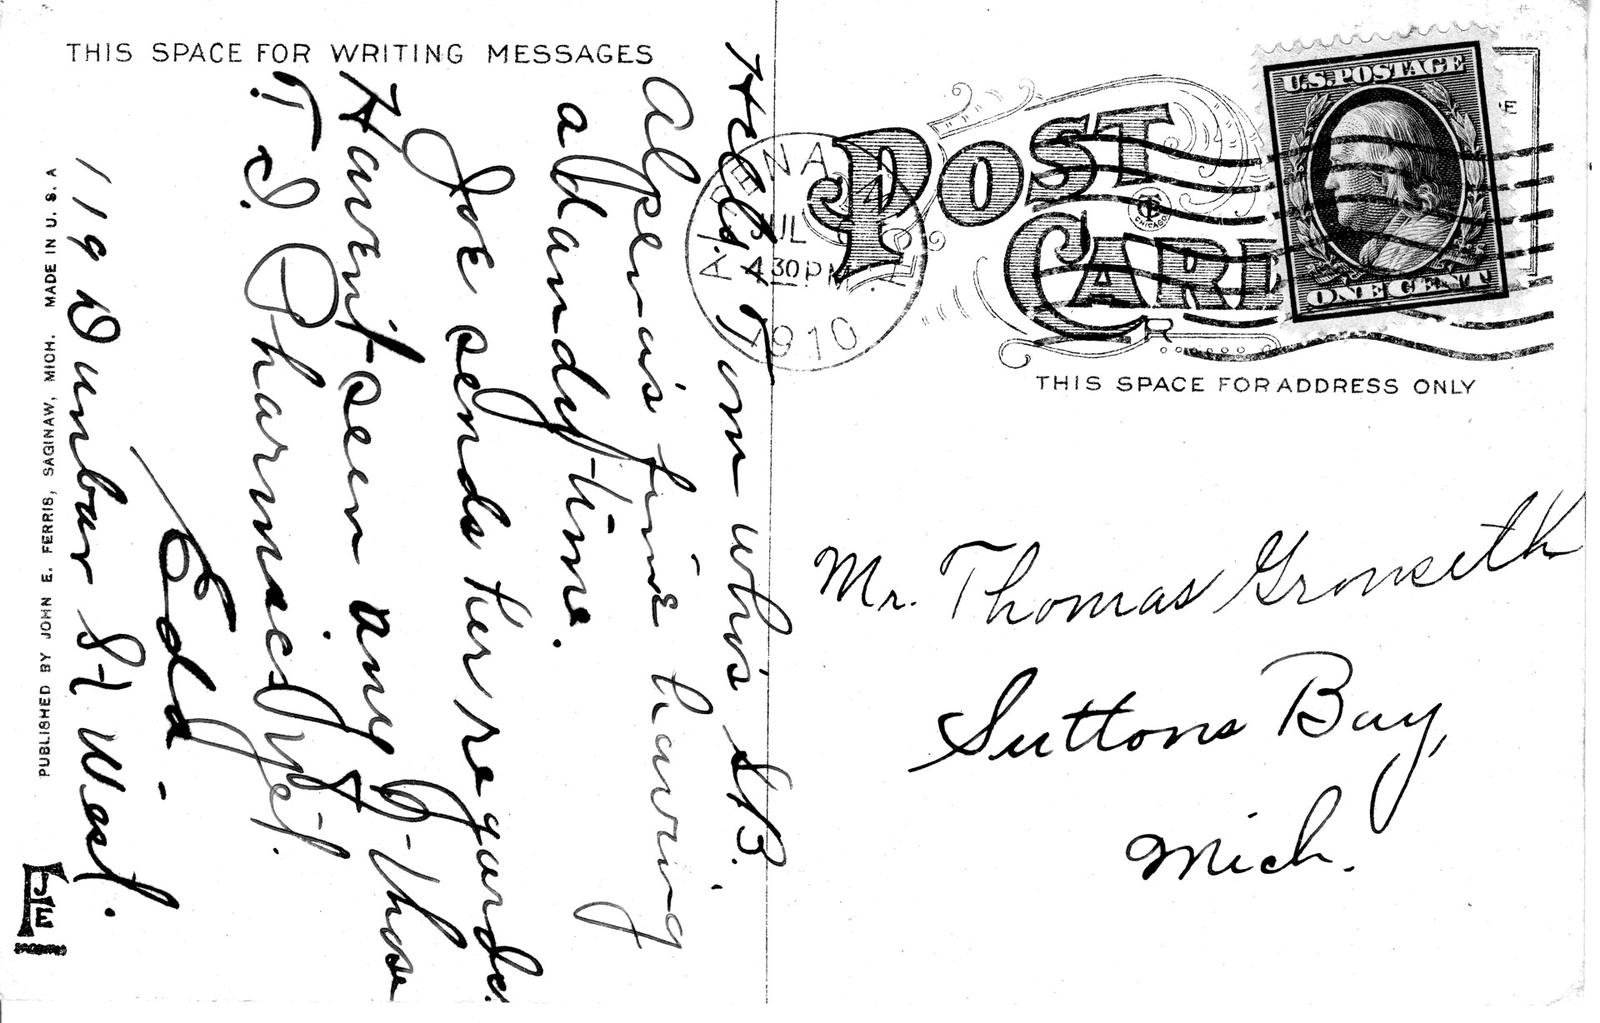 THIS SPACE FOR WRITING MESSAGES
Hello Tom who's S.B.
Alpena's fine having
a dandy time.
Joe sends her regards.
Havent seen any of those
T.S. Pharmacy yet.
Edd
119 Dunbar St West.
PUBLISHED BY JOHN E. FERRIS, SAGINAW, MICH. MADE IN U. S. A
JEF
POST
CARD
CT
CHICAGO
ALPENA
JUL
4 30 PM
1910
U.S. POSTAGE
ONE CENT
THIS SPACE FOR ADDRESS ONLY
Mr. Thomas Gronseth
Suttons Bay,
Mich.